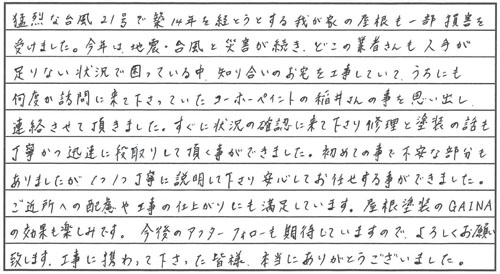 猛烈な台風21号で築14年を経とうとする我が家の屋根も一部損害を
受けました。今年は、地震・台風と災害が続き、どこの業者さんも人手が
足りない状況で困っている中、知り合いのお宅を工事していて、うちにも
何度か訪問に来て下さっていたユーホーペイントの稲井さんの事を思い出し、
連絡させて頂きました。すぐに状況の確認に来て下さり修理と塗装の話も
丁寧かつ迅速に段取りして頂く事ができました。初めての事で不安な部分も
ありましたが1つ1つ丁寧に説明して下さり安心してお任せする事ができました。
ご近所への配慮や工事の仕上がりにも満足しています。屋根塗装のGAINA
の効果も楽しみです。今後のアフターフォローも期待していますので、よろしくお願い
致します。工事に携わって下さった皆様、本当にありがとうございました。